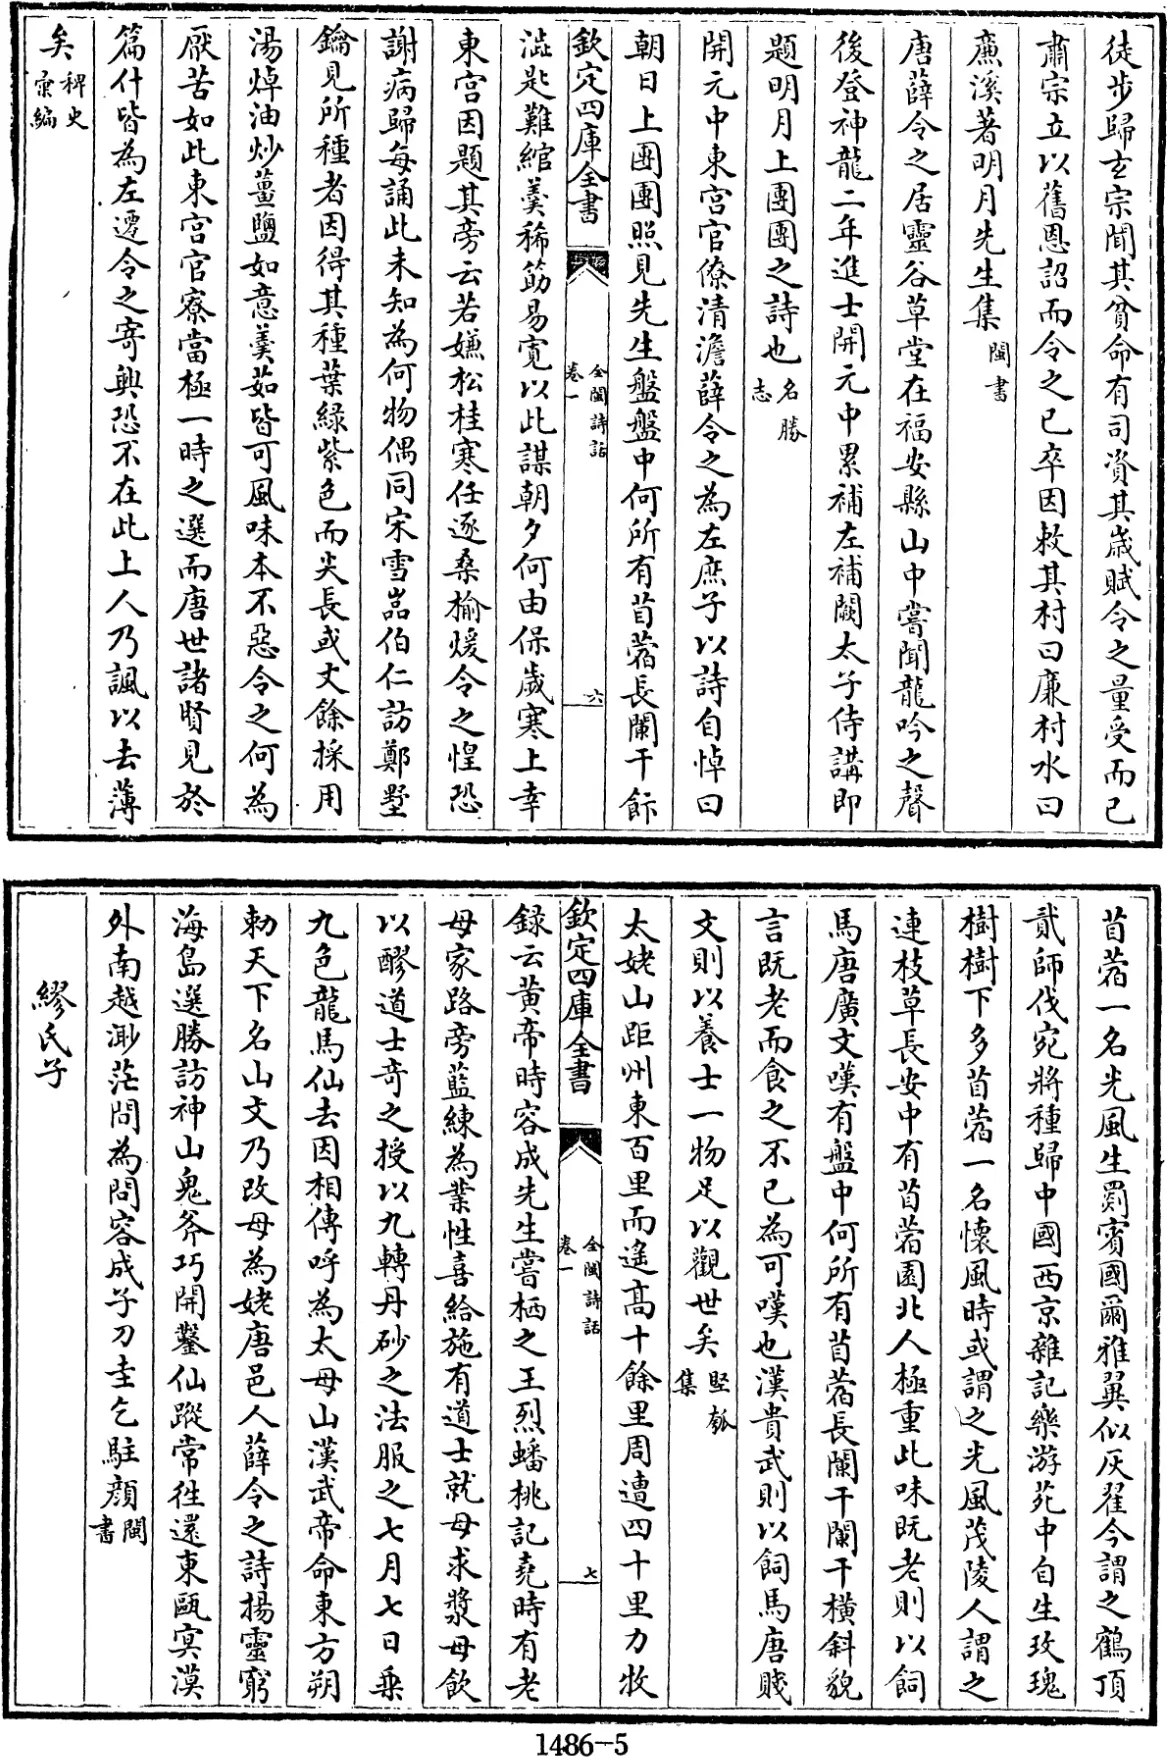 徒步歸玄宗聞其貧命有司資其歲賦令之量受而已
肅宗立以舊恩詔而令之已卒因敕其村曰廉村水曰
廉溪著明月先生集閩書
唐薛令之居靈谷草堂在福安縣山中嘗聞龍吟之聲
後登神龍二年進士開元中累補左補闕太子侍講即
題明月上團團之詩也名勝志
開元中東宮官僚清澹薛令之為左庶子以詩自悼曰
朝日上團團照見先生盤盤中何所有苜蓿長闌干餘
欽定四庫全書
全閩詩話
卷一
六
澁匙難綰羹稀筯易寬以此謀朝夕何由保歲寒上幸
東宮因題其旁云若嫌松桂寒任逐桑榆煖令之惶恐
謝病歸每誦此未知為何物偶同宋雪喦伯仁訪鄭墅
鑰見所種者因得其種葉緑紫色而尖長或丈餘採用
湯焯油炒薑鹽如意羹茹皆可風味本不惡令之何為
厭苦如此東宮官寮當極一時之選而唐世諸賢見於
篇什皆為左遷令之寄興恐不在此上人乃諷以去薄
矣稗史彙編
苜蓿一名光風生罽賓國爾雅翼似灰藋今謂之鶴頂
貳師伐宛將種歸中國西京雜記樂游苑中自生玫瑰
樹樹下多苜蓿一名懷風時或謂之光風茂陵人謂之
連枝草長安中有苜蓿園北人極重此味既老則以飼
馬唐廣文嘆有盤中何所有苜蓿長闌干闌干橫斜貌
言既老而食之不已為可嘆也漢貴武則以飼馬唐賤
文則以養士一物足以觀世矣堅瓠集
太姥山距州東百里而遙高十餘里周遭四十里力牧
欽定四庫全書
全閩詩話
卷一
七
録云黃帝時容成先生嘗栖之王烈蟠桃記堯時有老
母家路旁藍練為業性喜給施有道士就母求漿母飲
以醪道士奇之授以九轉丹砂之法服之七月七日乗
九色龍馬仙去因相傳呼為太母山漢武帝命東方朔
勅天下名山文乃改母為姥唐邑人薛令之詩揚靈窮
海島選勝訪神山鬼斧巧開鑿仙蹤常往還東甌冥漠
外南越渺茫間為問容成子刀圭乞駐顏閩書
繆氏子
1486-5